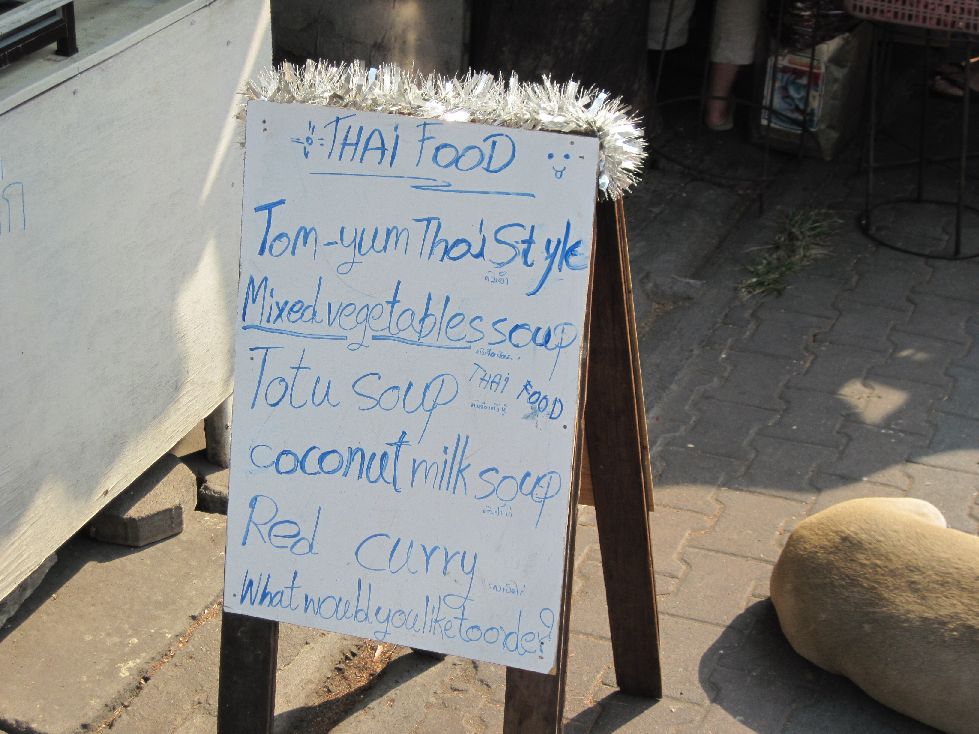 THAi FOOD
Tom-yum Thai Style
Mixed vegetables soup
Totu soup THAI FOOD
coconut milk soup
Red curry
What would you like to order?